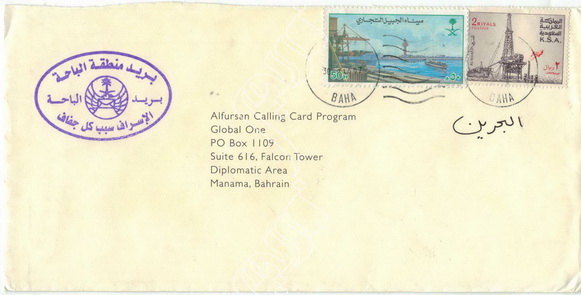 بريد منطقة الباحة
بريد
الباحة
الإسراف سبب كل جفاف
ميناء الجبيل التجاري
50
2 RIYALS
POSTAGE
المملكة
العربية
السعودية
K.S.A.
٢ ريال
BAHA
BAHA
البحرين
Alfursan Calling Card Program
Global One
PO Box 1109
Suite 616, Falcon Tower
Diplomatic Area
Manama, Bahrain